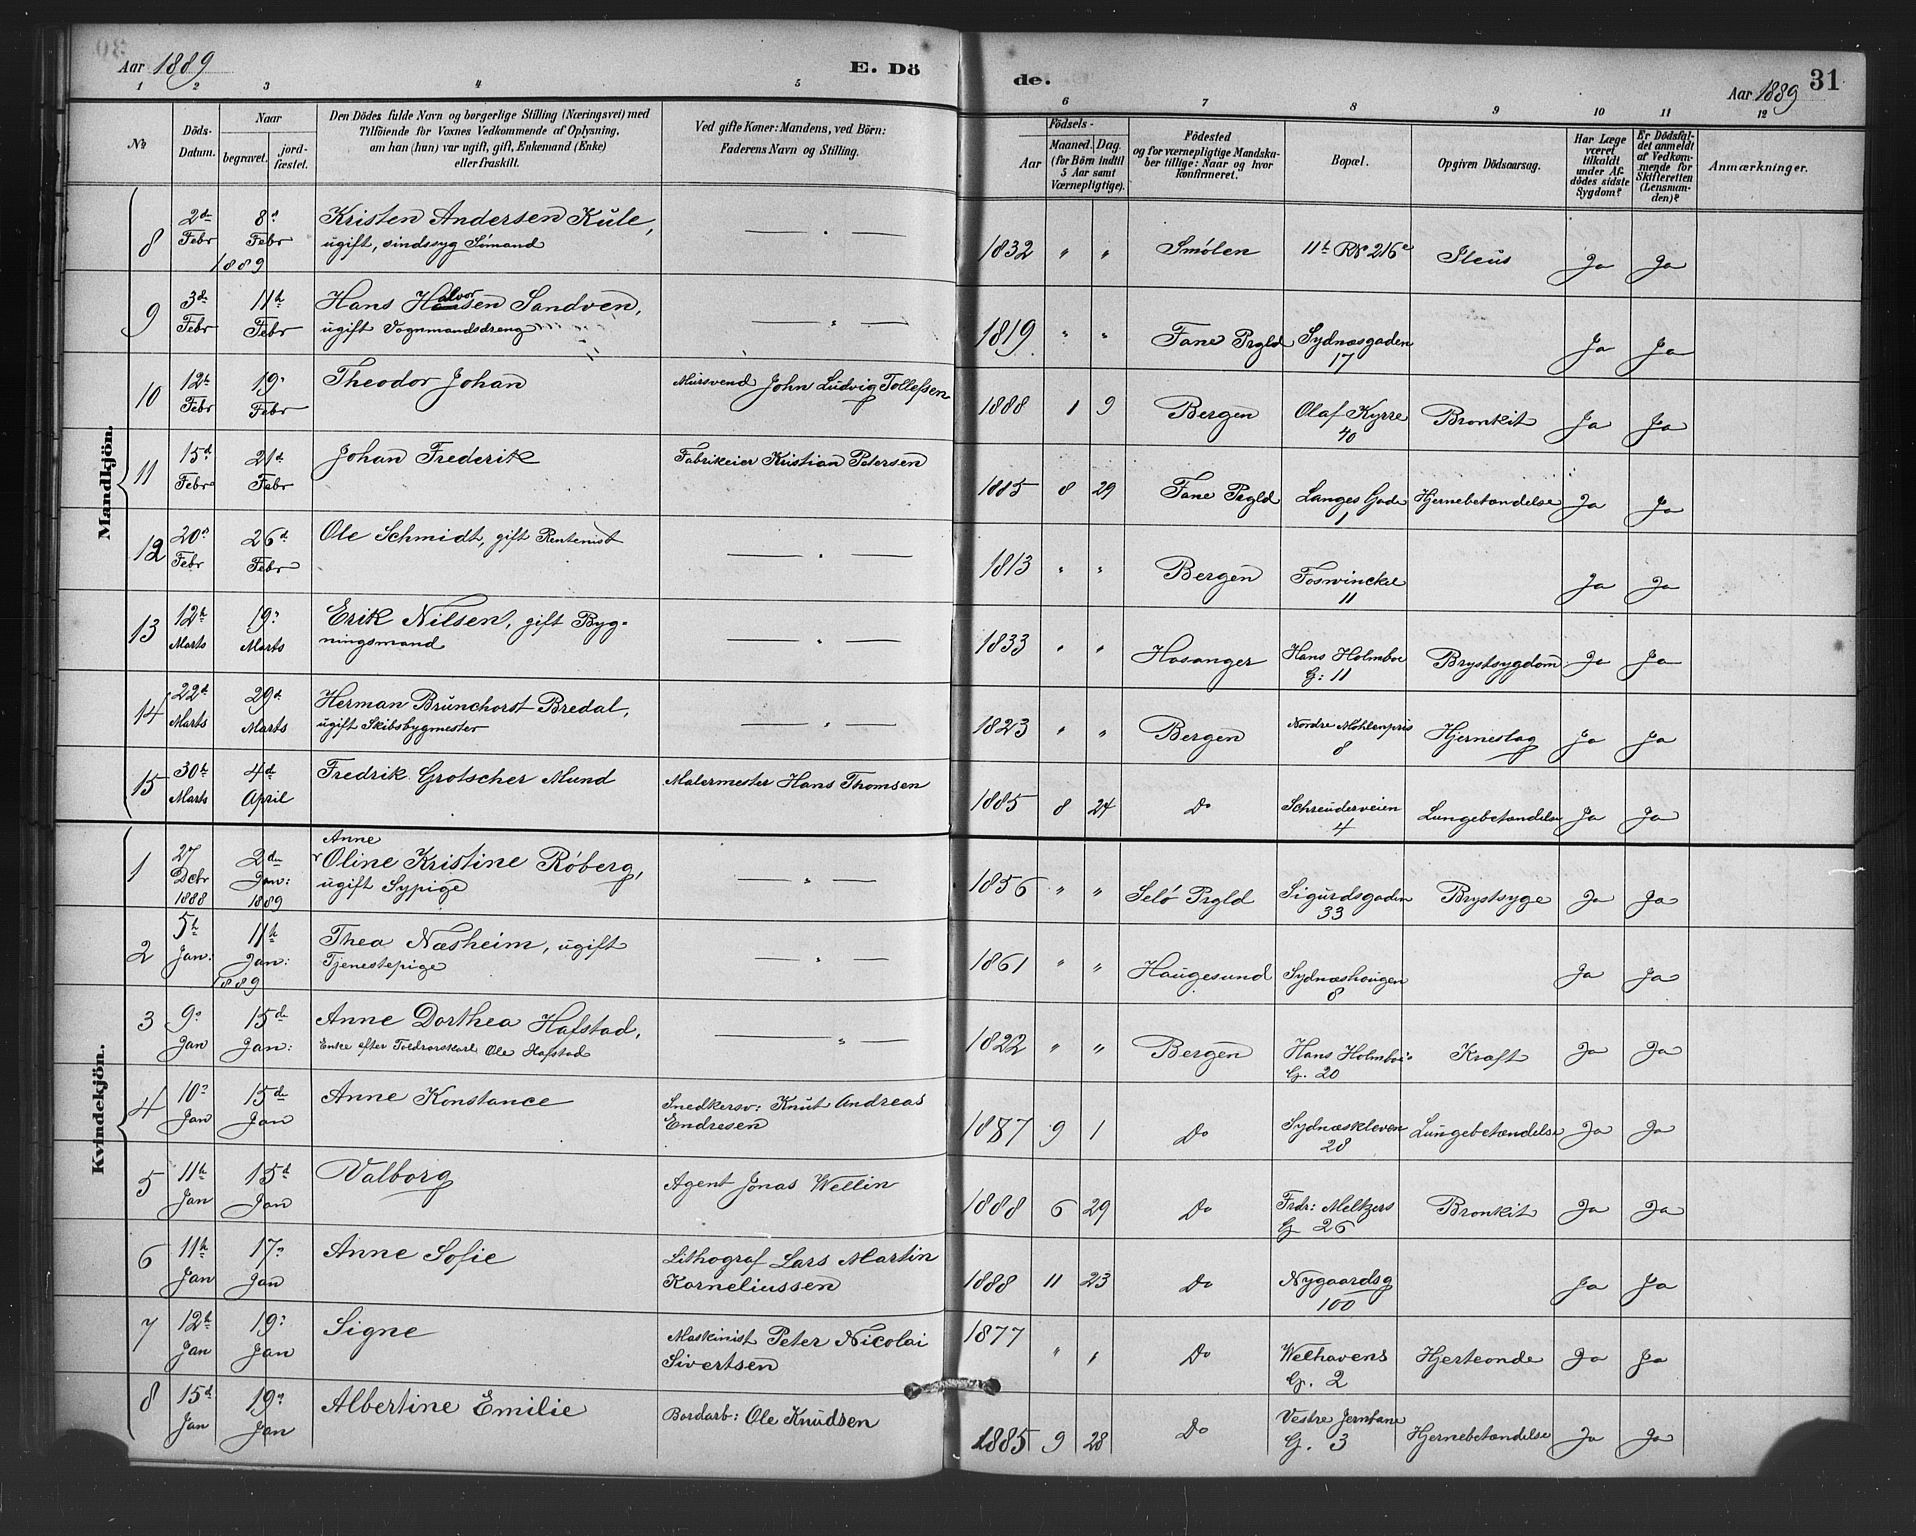 Aar 1889
E. Dö
de.
Aar 1889
31
1 2 3 4 5 6 7 8 9 10 11 12
No
Döds-Datum.
Naar
begravet.
jordfæstet.
Den Dödes fulde Navn og borgerlige Stilling (Næringsvei) med
Tilföiende for Voxnes Vedkommende af Oplysning,
om han (hun) var ugift, gift, Enkemand (Enke)
eller fraskilt.
Ved gifte Koner: Mandens, ved Börn:
Faderens Navn og Stilling.
Födsels-
Aar
Maaned. Dag.
(for Börn indtil
5 Aar samt
Værnepligtige).
Födested
og for værnepligtige Mandska-
ber tillige: Naar og hvor
konfirmeret.
Bopæl.
Opgiven Dödsaarsag.
Har Læge
været
tilkaldt
under Af-
dödes sidste
Sygdom?
Er Dödsfal-
det anmeldt
af Vedkom-
mende for
Skifteretten
(Lensman-
den)?
Anmærkninger.
Mandkjön.
8 2den Febr 8de Febr 1889 Kristen Andersen Kule,
ugift, sindssyg Sømand — " — 1832 " " Smølen 11te R No 216e Ileus Ja Ja
9 3de Febr 11te Febr Hans Halvorsen Sandven,
ugift Vognmandsdreng — " — 1819 " " Fane Prgld Sydnæsgaden 17 Ja Ja
10 12te Febr 19de Febr Theodor Johan Mursvend John Ludvig Tollefsen 1888 1 9 Bergen Olaf Kyrre 40 Bronkit Ja Ja
11 15de Febr 21de Febr Johan Frederik Fabrikeier Kristian Petersen 1885 8 29 Fane Prgld Langes Gade 1 Hjernebetændelse Ja Ja
12 20de Febr 26de Febr Ole Schmidt, gift Rentenist — " — 1813 " " Bergen Foswinckel 11 Ja Ja
13 12te Marts 19de Marts Erik Nilsen, gift Byg-
ningsmand — " — 1833 " " Hosanger Hans Holmboe G: 11 Brystsygdom Ja Ja
14 22de Marts 29de Marts Herman Brunchorst Bredal,
ugift Skibsbygmester — " — 1823 " " Bergen Nordre Møhlenpris 8 Hjerneslag Ja Ja
15 30te Marts 4de April Fredrik Grotscher Mund Malermester Hans Thomsen 1885 8 24 Do Schreuderveien 4 Lungebetændelse Ja Ja
Kvindekjön.
1 27 Dcbr 1888 2den Jan: 1889 Anne
Oline Kristine Røberg,
ugift Sypige — " — 1856 " " Selø Prgld Sigurdsgaden 33 Brystsyge Ja Ja
2 5te Jan: 11te Jan: 1889 Thea Næsheim, ugift
Tjenestepige — " — 1861 " " Haugesund Sydnæshaugen 8 Ja Ja
3 9de Jan 15de Jan: Anne Dorthea Hafstad,
Enke efter Toldrorskarl Ole Hafstad — " — 1822 " " Bergen Hans Holmboes G. 20 Kræft Ja Ja
4 10de Jan 15de Jan Anne Konstance Snedkersv: Knut Andreas
Endresen 1887 9 1 Do Sydnæskleven 28 Lungebetændelse Ja Ja
5 11te Jan 15de Jan Valborg Agent Jonas Wellin 1888 6 29 Do Frdr: Meltzers G 26 Bronkit Ja Ja
6 11te Jan 17de Jan Anne Sofie Lithograf Lars Martin
Korneliussen 1888 11 23 Do Nygaardsg 100 Ja Ja
7 12te Jan 19de Jan Signe Maskinist Peter Nicolai
Sivertsen 1877 " " Do Welhavens G. 2 Hjerteonde Ja Ja
8 15de Jan 19de Jan Albertine Emilie Bordarb: Ole Knudsen 1885 9 28 Do Vestre Jernbane G. 3 Hjernebetændelse Ja Ja